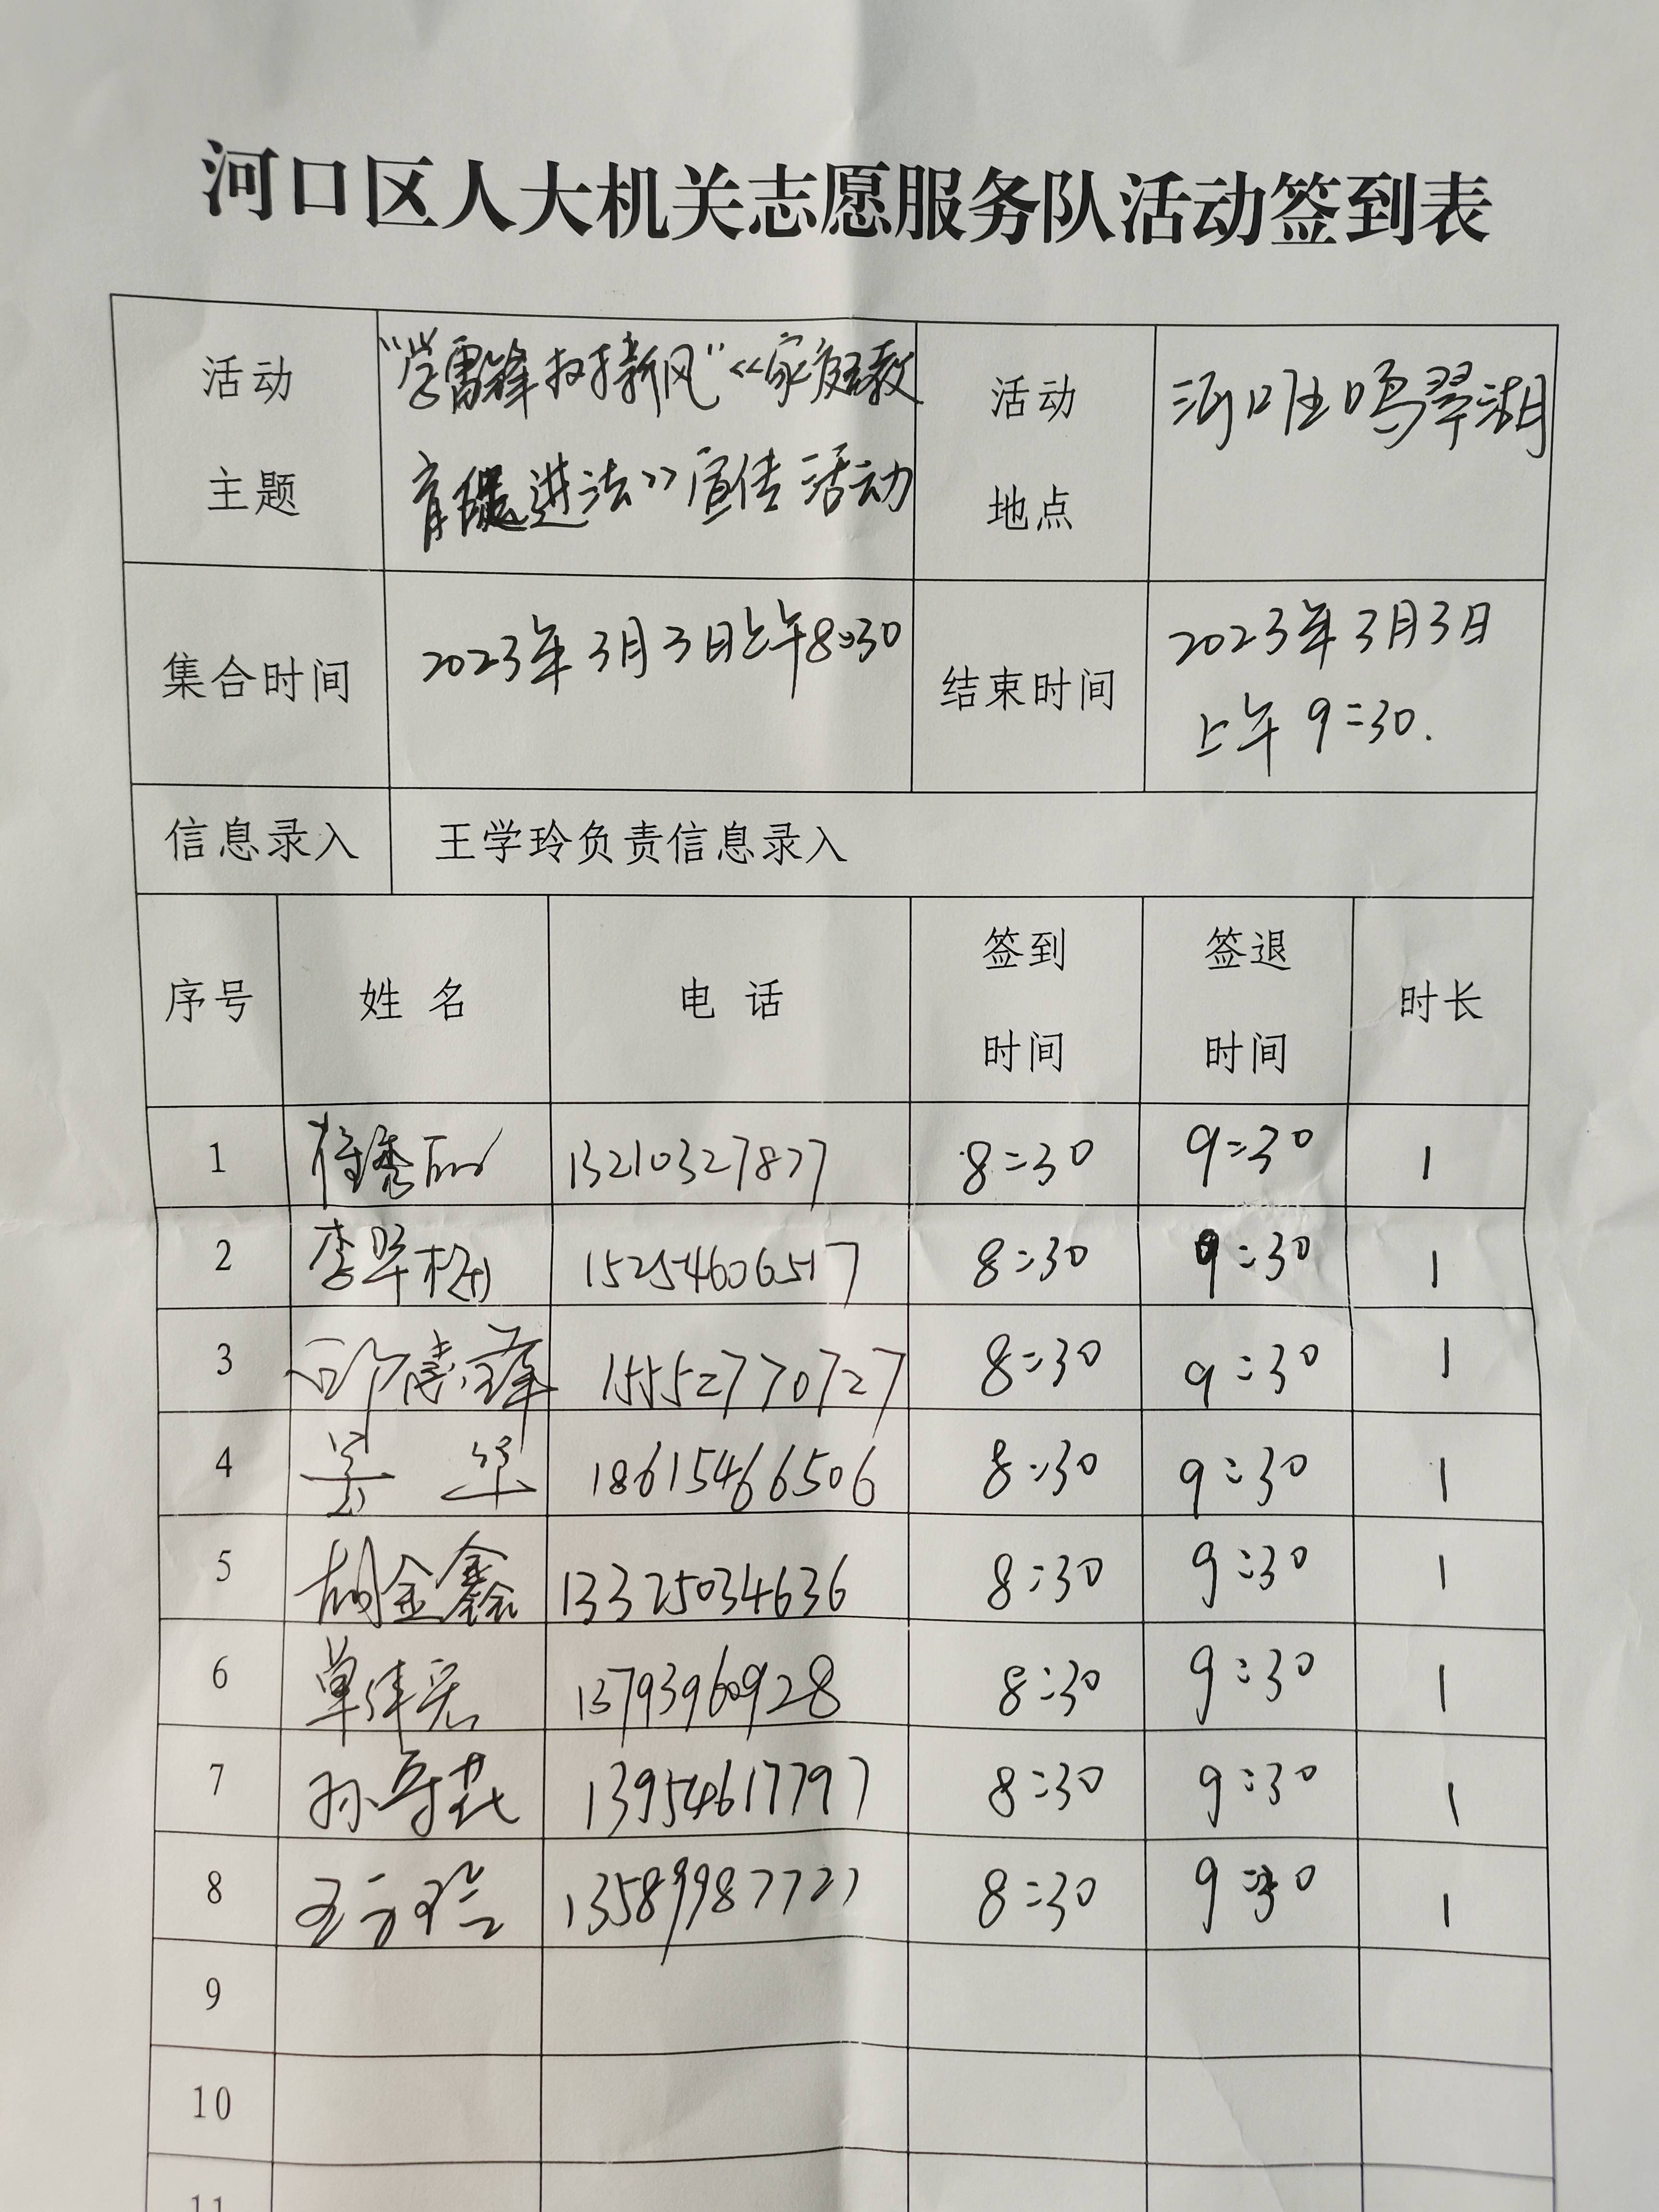 河口区人大机关志愿服务队活动签到表
活动 主题 "学雷锋树新风"《家庭教 活动 地点 河口区鸣翠湖
育促进法》宣传活动
集合时间 2023年3月3日上午8:30 结束时间 2023年3月3日
上午9:30.
信息录入 王学玲负责信息录入
序号 姓名 电话 签到 时间 签退 时间 时长
1 崔秀丽 13210327877 8:30 9:30 1
2 李 15254606517 8:30 9:30 1
3 15552770727 8:30 9:30 1
4 18615466506 8:30 9:30 1
5 胡金鑫 13325034636 8:30 9:30 1
6 单 13793960928 8:30 9:30 1
7 孙 13954617797 8:30 9:30 1
8 王 13589987727 8:30 9:30 1
9
10
11